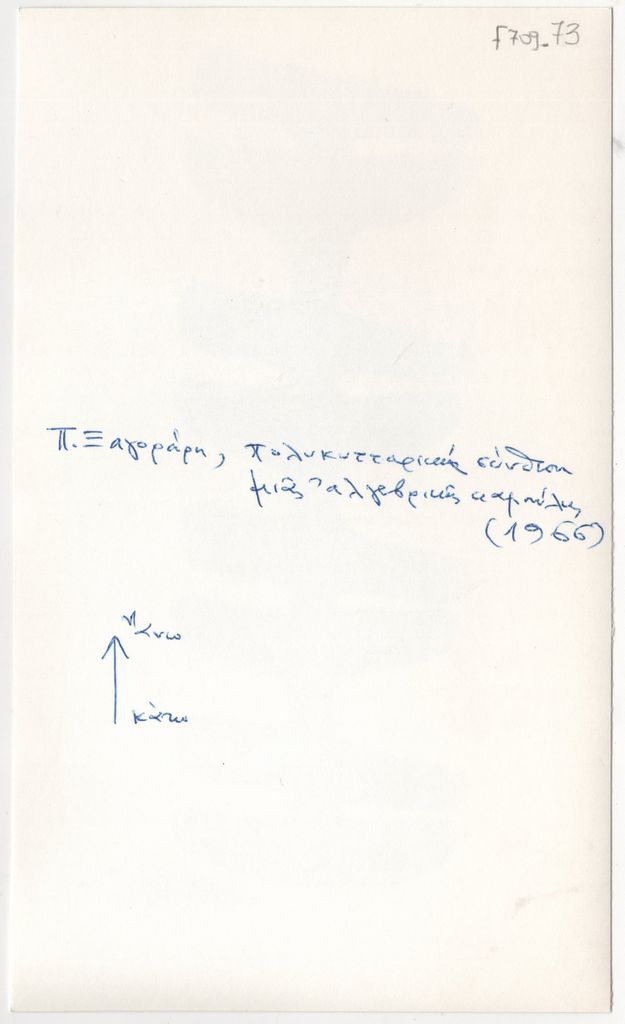 f709.73
Π. Ξαγοράρη, πολυκυτταρική σύνθεση
μιᾶς ἀλγεβρικῆς καμπύλης
(1966)
ἄνω
κάτω